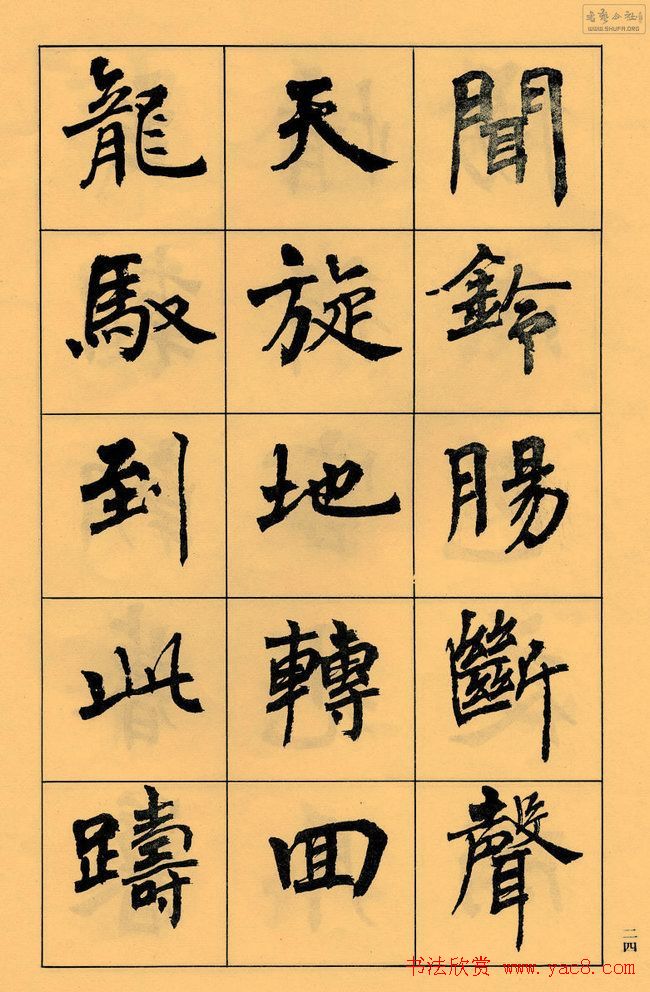 聞鈴腸斷聲
天旋地轉回
龍馭到此躊
二四
WWW.SHUFA.ORG
书法欣赏 www.yac8.com